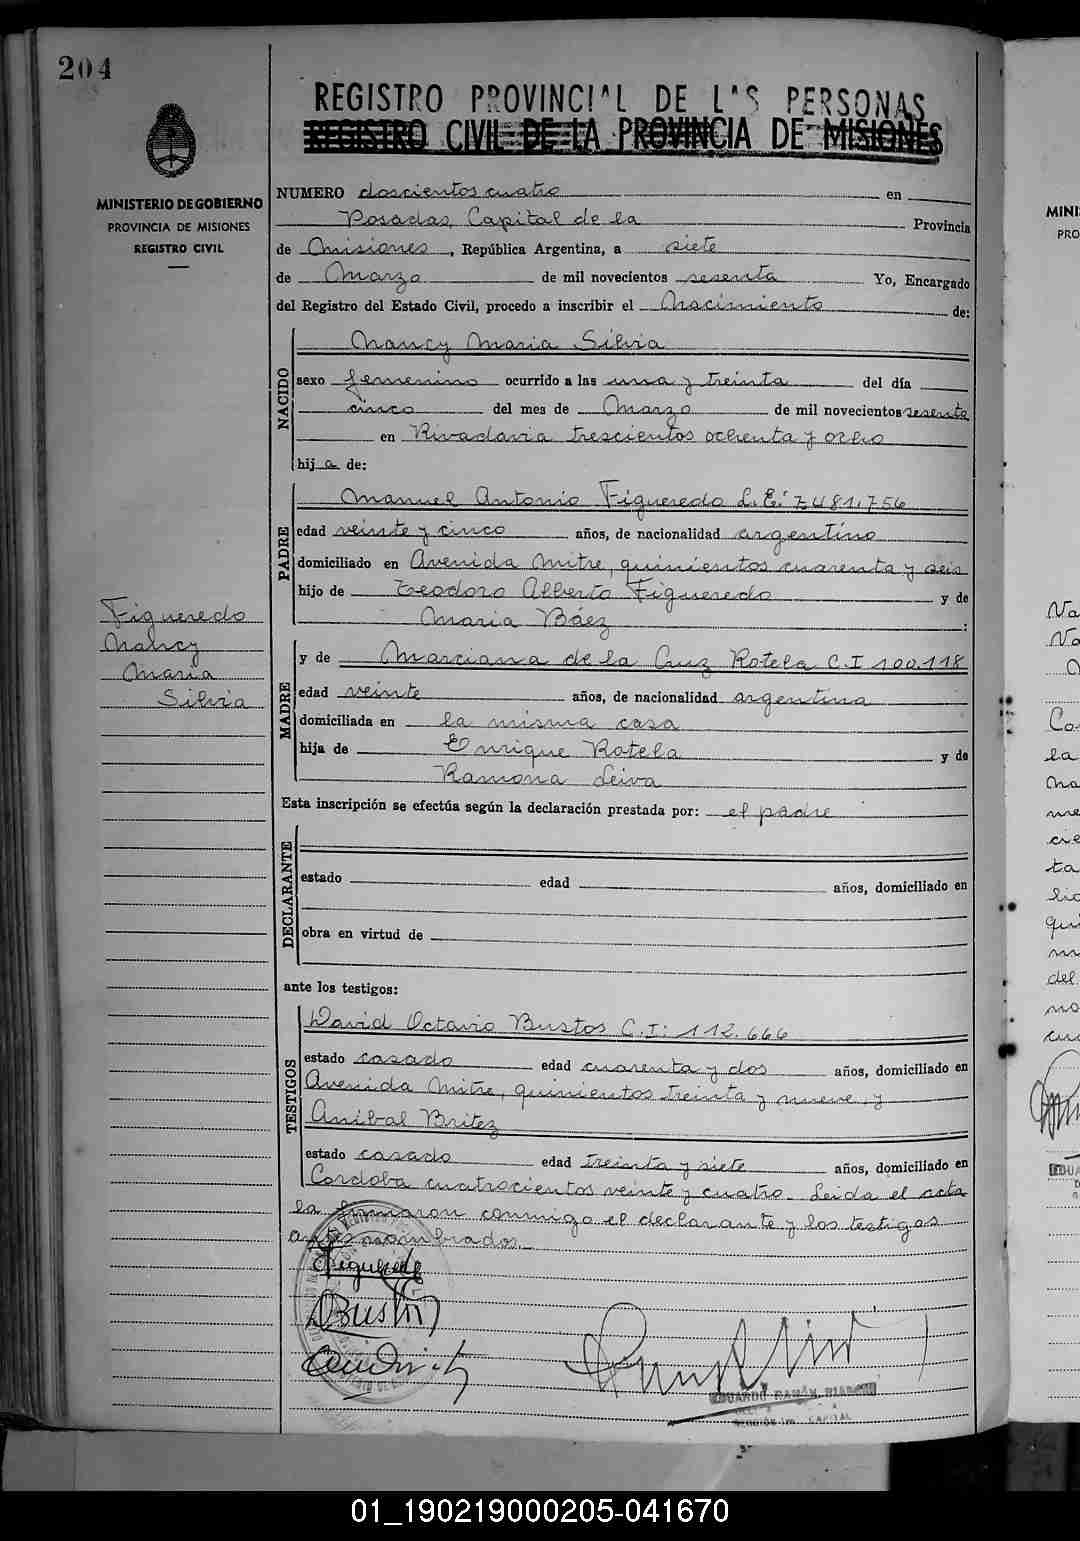 204
MINISTERIO DE GOBIERNO
PROVINCIA DE MISIONES
REGISTRO CIVIL
Figueredo
Nancy
Maria
Silvia
REGISTRO PROVINCIAL DE LAS PERSONAS
REGISTRO CIVIL DE LA PROVINCIA DE MISIONES
NUMERO doscientos cuatro en
Posadas, Capital de la Provincia
de Misiones, República Argentina, a siete
de Marzo de mil novecientos sesenta Yo, Encargado
del Registro del Estado Civil, procedo a inscribir el Nacimiento de:
NACIDO
Nancy Maria Silvia
sexo femenino ocurrido a las una y treinta del día
cinco del mes de Marzo de mil novecientos sesenta
en Rivadavia trescientos ochenta y ocho
hija de:
PADRE
Manuel Antonio Figueredo L.E: 7.481.756
edad veinte y cinco años, de nacionalidad argentino
domiciliado en Avenida Mitre, quinientos cuarenta y seis
hijo de Teodoro Alberto Figueredo y de
Maria Báez :
MADRE
y de Marciana de la Cruz Rotela C.I 100.118
edad veinte años, de nacionalidad argentina
domiciliada en la misma casa
hija de Enrique Rotela y de
Ramona Leiva
Esta inscripción se efectúa según la declaración prestada por: el padre
DECLARANTE
estado edad años, domiciliado en
obra en virtud de
ante los testigos:
TESTIGOS
David Octavio Bustos C.I: 112.666
estado casado edad cuarenta y dos años, domiciliado en
Avenida Mitre, quinientos treinta y nueve, y
Anibal Britez
estado casado edad treinta y siete años, domiciliado en
Cordoba cuatrocientos veinte y cuatro. Leida el acta
la firmaron conmigo el declarante y los testigos
antes nombrados.
Figueredo
DBustos
EDUARDO RAMÓN BIANCHI
CAPITAL
01_190219000205-041670